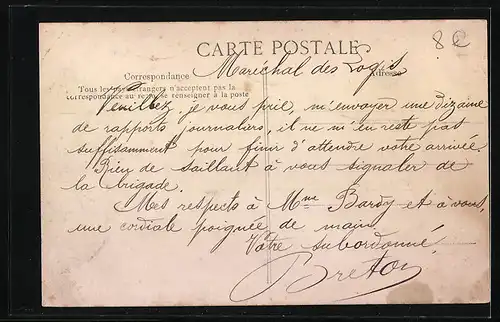 8 €
CARTE POSTALE
Maréchal des Logis
Correspondance
Adresse
Tous les pays étrangers n'acceptent pas la
correspondance au se renseigner à la poste
Veuillez je vous prie, m'envoyer une dizaine
de rapports journaliers, il ne m'en reste pas
suffisamment pour finir d'attendre votre arrivée.
Rien de saillant à vous signaler de
la brigade.
Mes respects à Mme Bardy et à vous,
une cordiale poignée de main.
Votre subordonné.
Breton